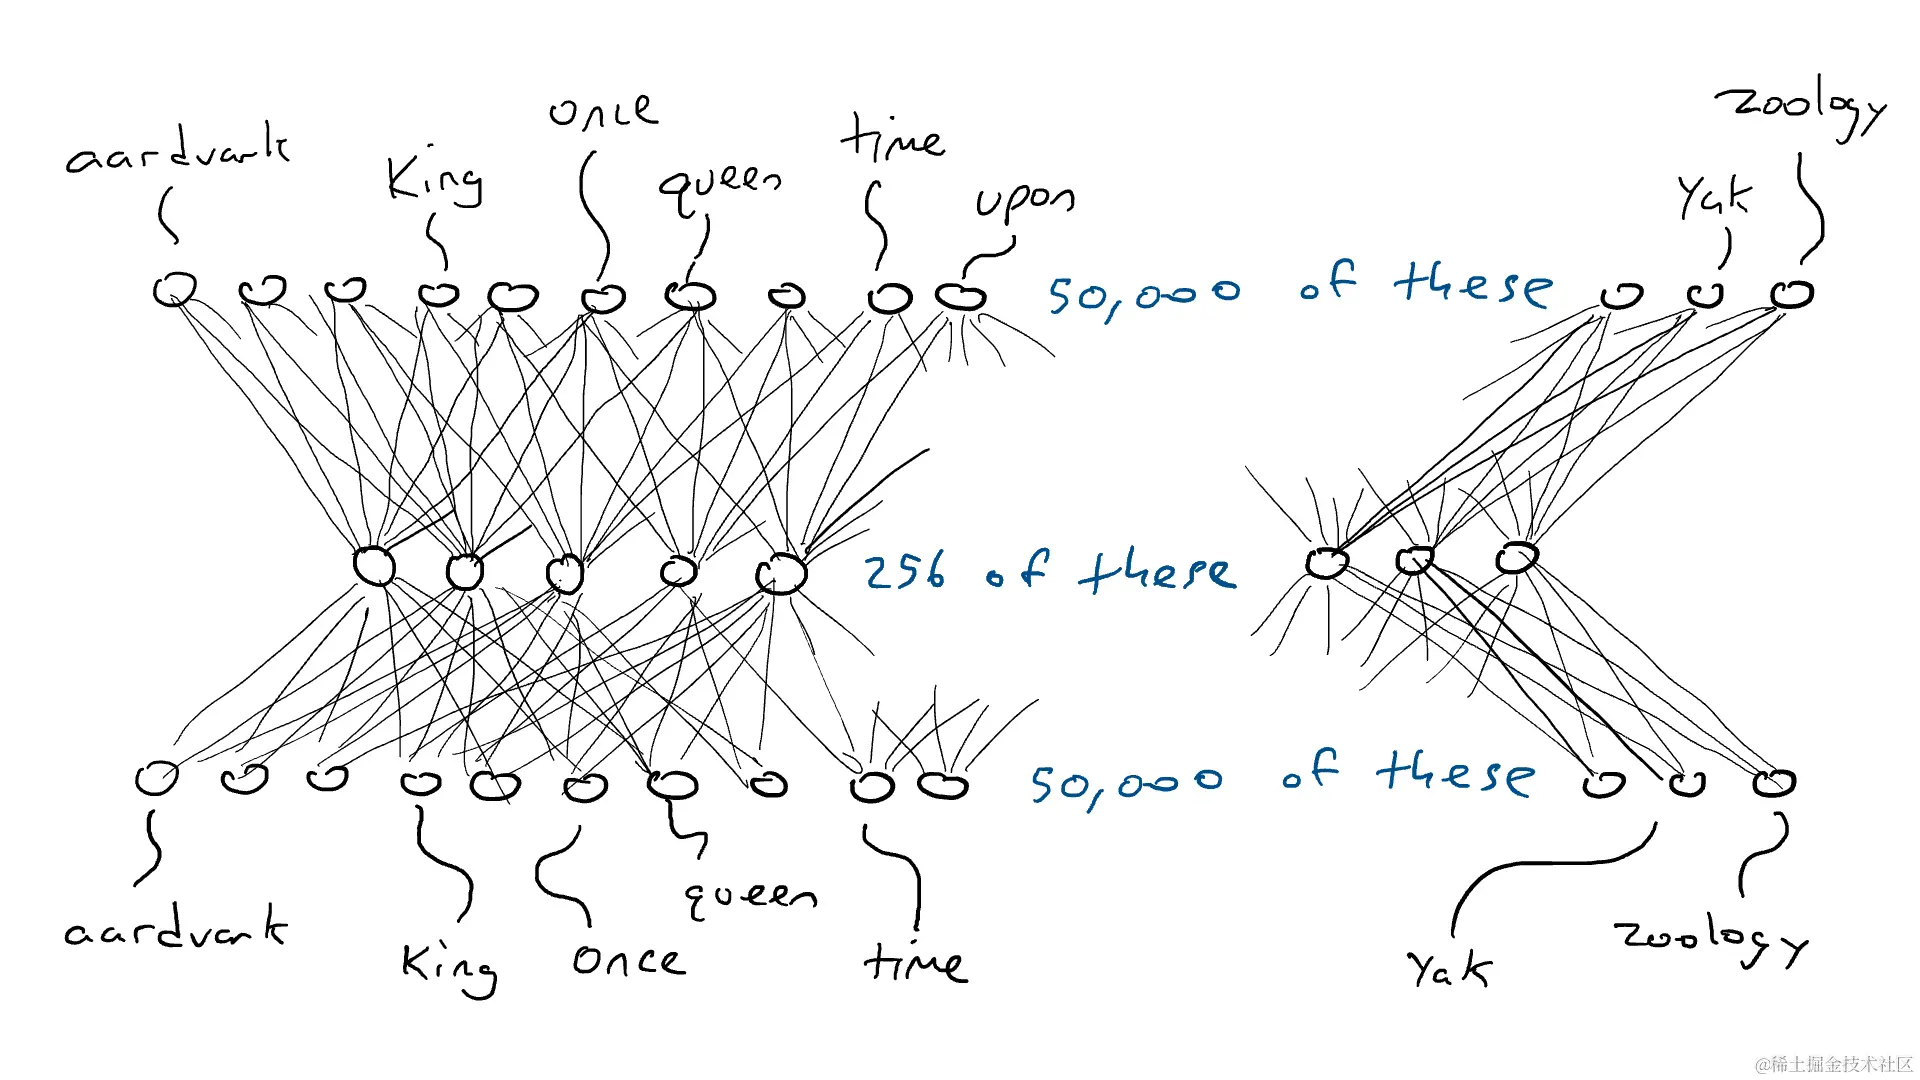 aardvark
King
once
queen
time
upon
Yak
zoology
50,000 of these
256 of these
50,000 of these
aardvark
King
Once
queen
time
Yak
zoology
@稀土掘金技术社区